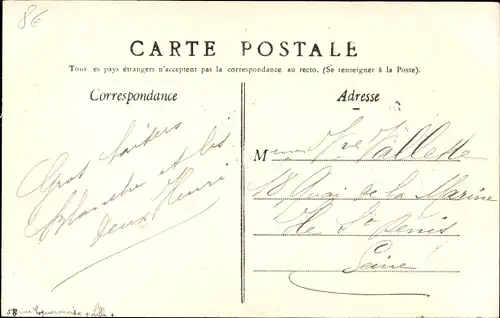 8€
CARTE POSTALE
Tous es pays étrangers n'acceptent pas la correspondance au recto. (Se renseigner à la Poste).
Correspondance
Adresse
Gros baisers
Blanche et les
deux Henri
Mme Vve Vallette
18 Quai de la Marine
Ile St Denis
Seine